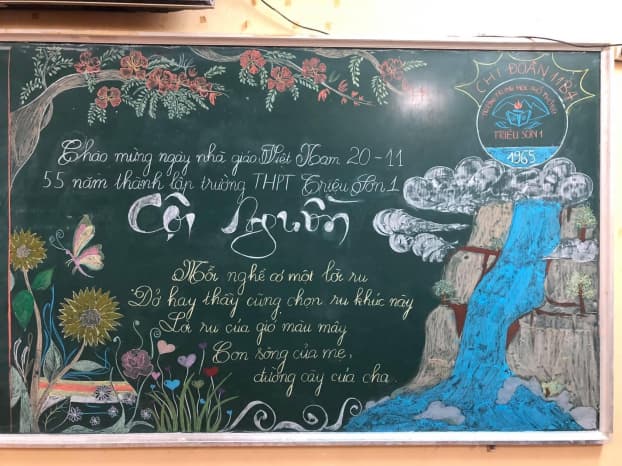 CHI ĐOÀN 11B4
TRƯỜNG TRUNG HỌC PHỔ THÔNG
TRIỆU SƠN 1
1965
Chào mừng ngày nhà giáo Việt Nam 20 - 11
55 năm thành lập trường THPT Triệu Sơn 1
Cội Nguồn
Mỗi nghề có một lời ru
Dở hay thầy cũng chọn ru khúc này
Lời ru của gió màu mây
Con sông của mẹ,
đường cày của cha.